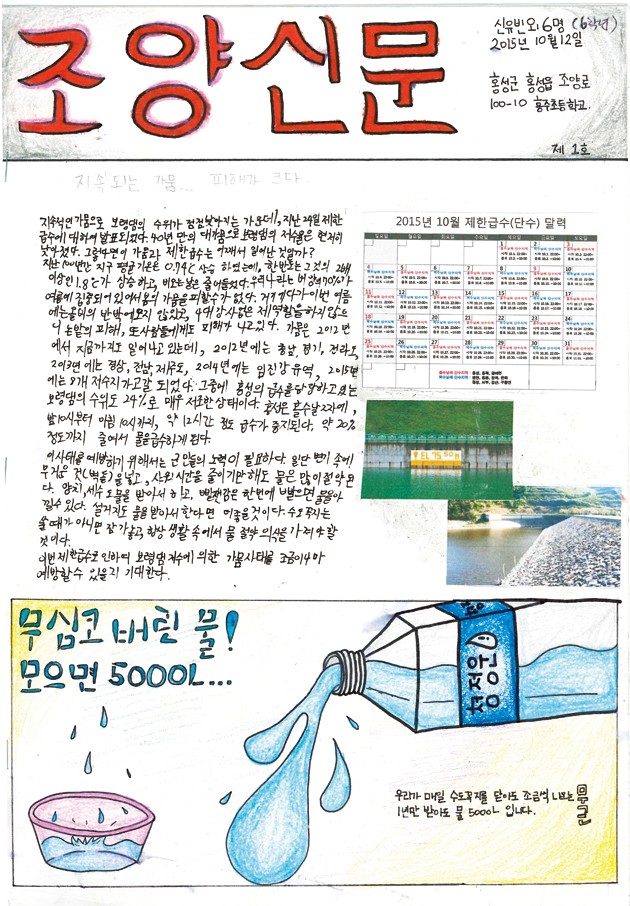 조양신문
신유빈 외 6명 (6학년)
2015년 10월 12일
홍성군 홍성읍 조양로
100-10 홍주초등학교.
제 1호
지속되는 가뭄... 피해가 크다
지속적인 가뭄으로 보령댐의 수위가 점점 낮아지는 가운데, 지난 24일 제한
급수에 대하여 발표되었다. 40년 만의 대가뭄으로 보령댐의 저수율은 현저히
낮아졌다. 그렇다면 이 가뭄과 제한급수는 어째서 일어난 것일까?
지난 100년간 지구 평균기온은 0.74℃ 상승 하였는데, 한반도는 그것의 2배
이상인 1.8℃가 상승하고, 비오는 날은 줄어들었다. 우리나라는 벼 강수 70%가
여름에 집중되어 있어 봄에 가뭄을 피할 수가 없다. 거기에다가 이번 여름
에는 비의 반 밖에 오지 않았고, 4대강 사업은 제 역할을 하지 않으
니 논밭의 피해, 또 사람들에게도 피해가 가고 있다. 가뭄은 2012년
에서 지금까지도 일어나고 있는데, 2012년에는 충남, 경기, 전라도,
2013년에는 경상, 전남, 제주도, 2014년에는 임진강 유역, 2015년
에는 8개 저수지가 고갈 되었다. 그중에 홍성의 급수를 담당하고 있는
보령댐의 수위도 24%로 매우 저조한 상태이다. 홍성은 홀수날 2차에,
밤 10시부터 아침 10시까지, 약 12시간 정도 급수가 중지된다. 약 20%
정도까지 줄여서 물을 급수하게 된다.
이 사태를 예방하기 위해서는 군민들의 노력이 필요하다. 일단 변기 속에
무거운 것(벽돌)을 넣고, 샤워 시간을 줄이기만 해도 물은 많이 절약 된
다. 양치, 세수도 물을 받아서 하고, 빨랫감은 한번에 빨으면 물을 아
낄 수 있다. 설거지도 물을 받아서 한다면 더 좋을 것이다. 수도꼭지는
쓸 때가 아니면 잠가 놓고, 항상 생활 속에서 물 절약 의식을 가져야 할
것이다.
이번 제한급수로 인하여 보령댐 저수에 의한 가뭄사태를 조금이나마
예방할 수 있을지 기대한다.
2015년 10월 제한급수(단수) 달력
일요일 월요일 화요일 수요일 목요일 금요일 토요일
1 2 3
4 5 6 7 8 9 10
11 12 13 14 15 16 17
18 19 20 21 22 23 24
25 26 27 28 29 30 31
EL 75.50m
무심코 버린 물!
모으면 5000L...
청정수
우리가 매일 수도꼭지를 닫아도 조금씩 나오는 물
1년만 받아도 물 5000L 입니다.